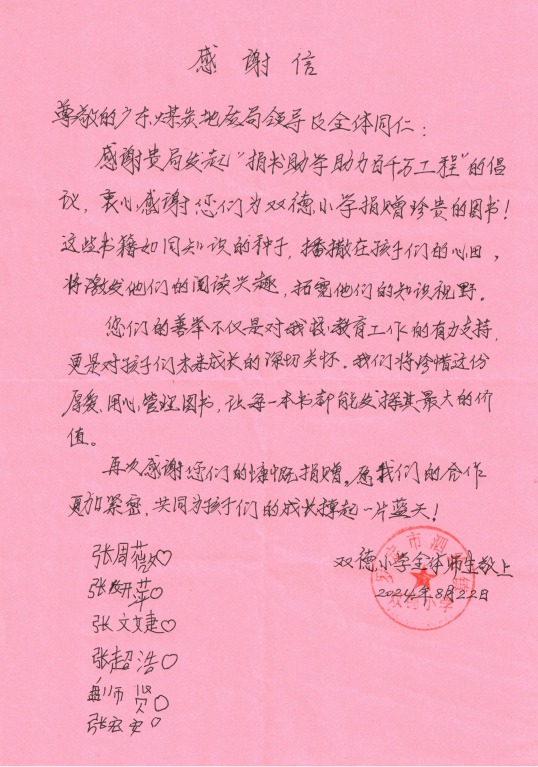 感谢信
尊敬的广东煤炭地质局领导及全体同仁：
感谢贵局发起“捐书助学助力百千万工程”的倡
议，衷心感谢您们为双德小学捐赠珍贵的图书！
这些书籍如同知识的种子，播撒在孩子们的心田，
将激发他们的阅读兴趣，拓宽他们的知识视野。
您们的善举不仅是对我校教育工作的有力支持，
更是对孩子们未来成长的深切关怀。我们将珍惜这份
厚爱，用心管理图书，让每一本书都能发挥其最大的价
值。
再次感谢您们的慷慨捐赠。愿我们的合作
更加紧密，共同为孩子们的成长撑起一片蓝天！
双德小学全体师生敬上
2024年8月22日
张周薇
张妍苹
张文婕
张超浩
师贤
张宏安
市泗
双德小学